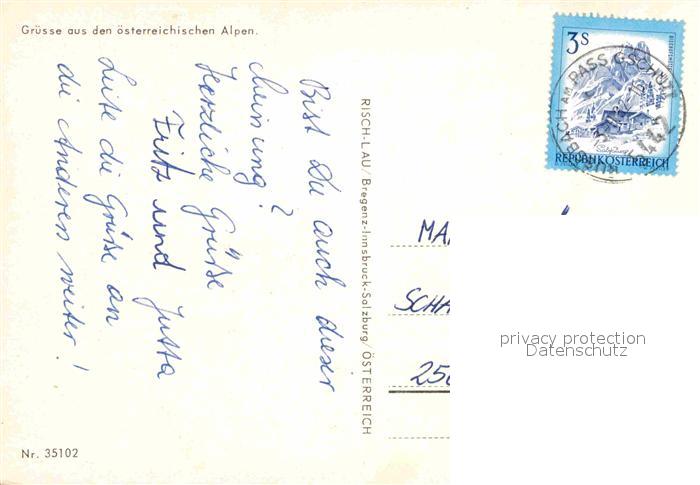 Grüsse aus den österreichischen Alpen.
Bist Du auch dieser
Meinung?
Herzliche Grüße
Fritz und Jutta
Leite die Grüße an
die Anderen weiter!
Nr. 35102
RISCH-LAU/Bregenz-Innsbruck-Salzburg/ÖSTERREICH
3 S
REPUBLIK ÖSTERREICH
AM PASS GSCHÜTT
5442
MA
SCHA
25
privacy protection
Datenschutz